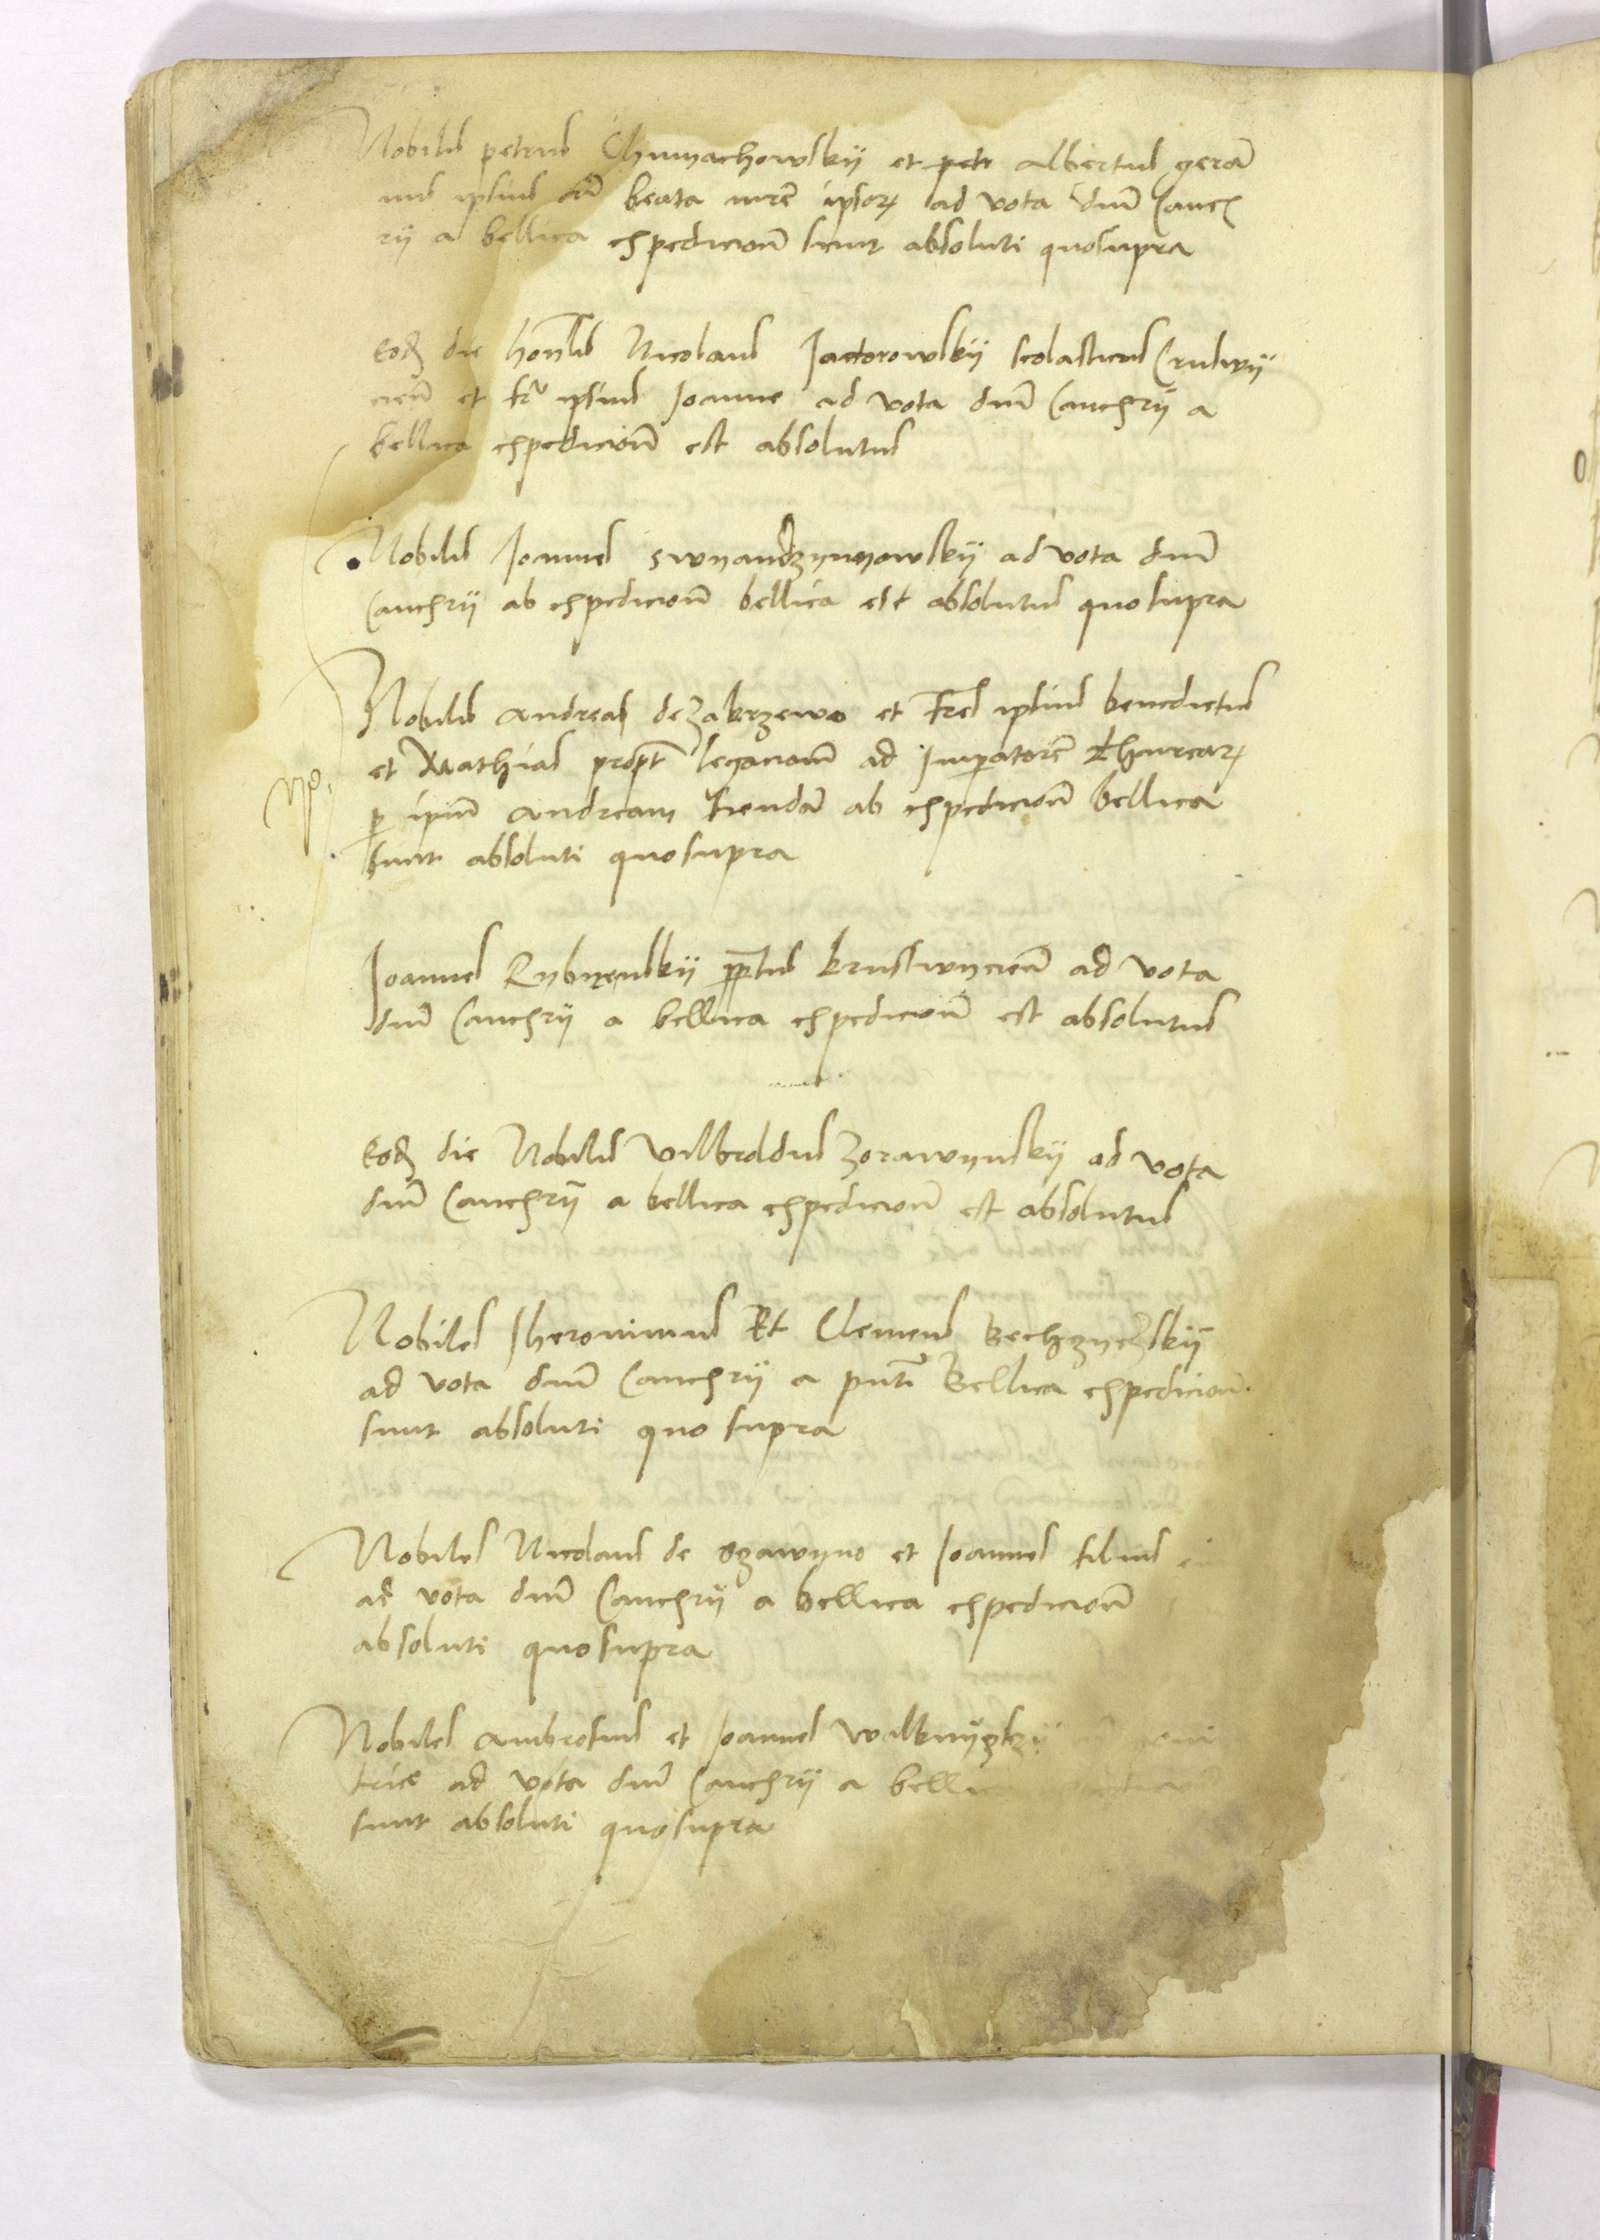 Nobilis petrus Chumachowskij et petr Albertus germā
nus ipsius cū beata mrē ipsoꝝ ad vota dnī Canc
rij a bellica expedicionē sunt absoluti quosupra
Eodē die honlīs Nicolaus Jactorowskij scolasticus Cruswij
cień et fr ipsius Joanne ad vota dnī Cancrij a
bellica expedicionē est absolutus
Nobilis Joannes ad vota dnī
Cancrij ab expedicionē bellica est absolutus quosupra
Nobilis Andreas de Zakrzewo et Fres ipsius benedictus
et Mathias propt legacionē ad Imperatorē thurcaꝝ
p ipsū Andream fiendā ab expedicionē bellica
sunt absoluti quosupra
No.
Joannes Rybyenskij pptus Kruswycień ad vota
dnī Cancrij a bellica expedicionē est absolutus
Eodē die Nobilis Vilbroldus Zorawynskij ad vota
dnī Cancrij a bellica expedicionē est absolutus
Nobiles Jheronimus Et Clemens
ad vota dnī Cancrij a pntī Bellica expedicionē
sunt absoluti quo supra
Nobiles Nicolaus de Ozawyno et Joannes filius
ad vota dnī Cancrij a bellica expedicionē
absoluti quosupra
Nobiles Ambrosius et Joannes
trice ad vota dnī Cancrij a bellica
sunt absoluti quosupra